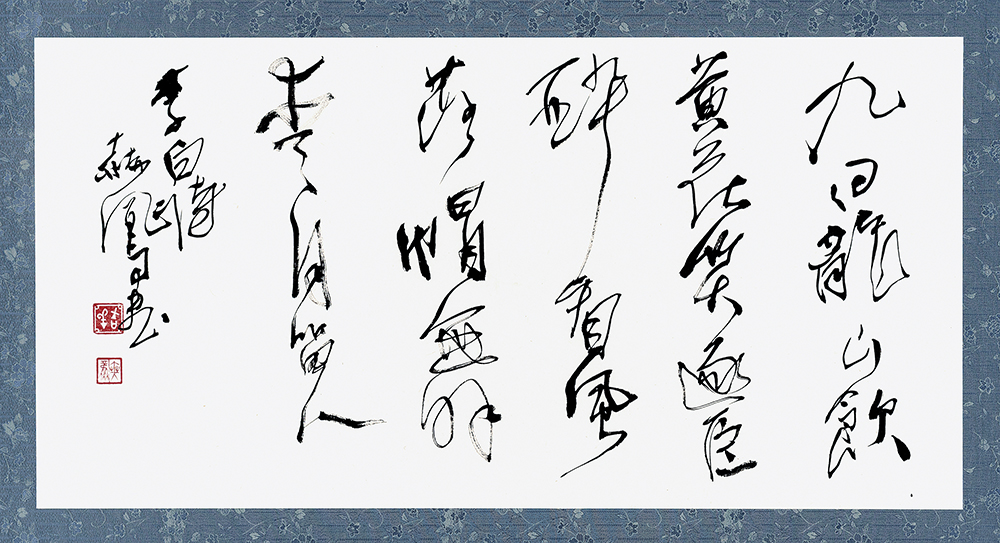 九日龍山飲
黄花笑逐臣
醉看風
落帽舞
愛月留人
李白詩
書